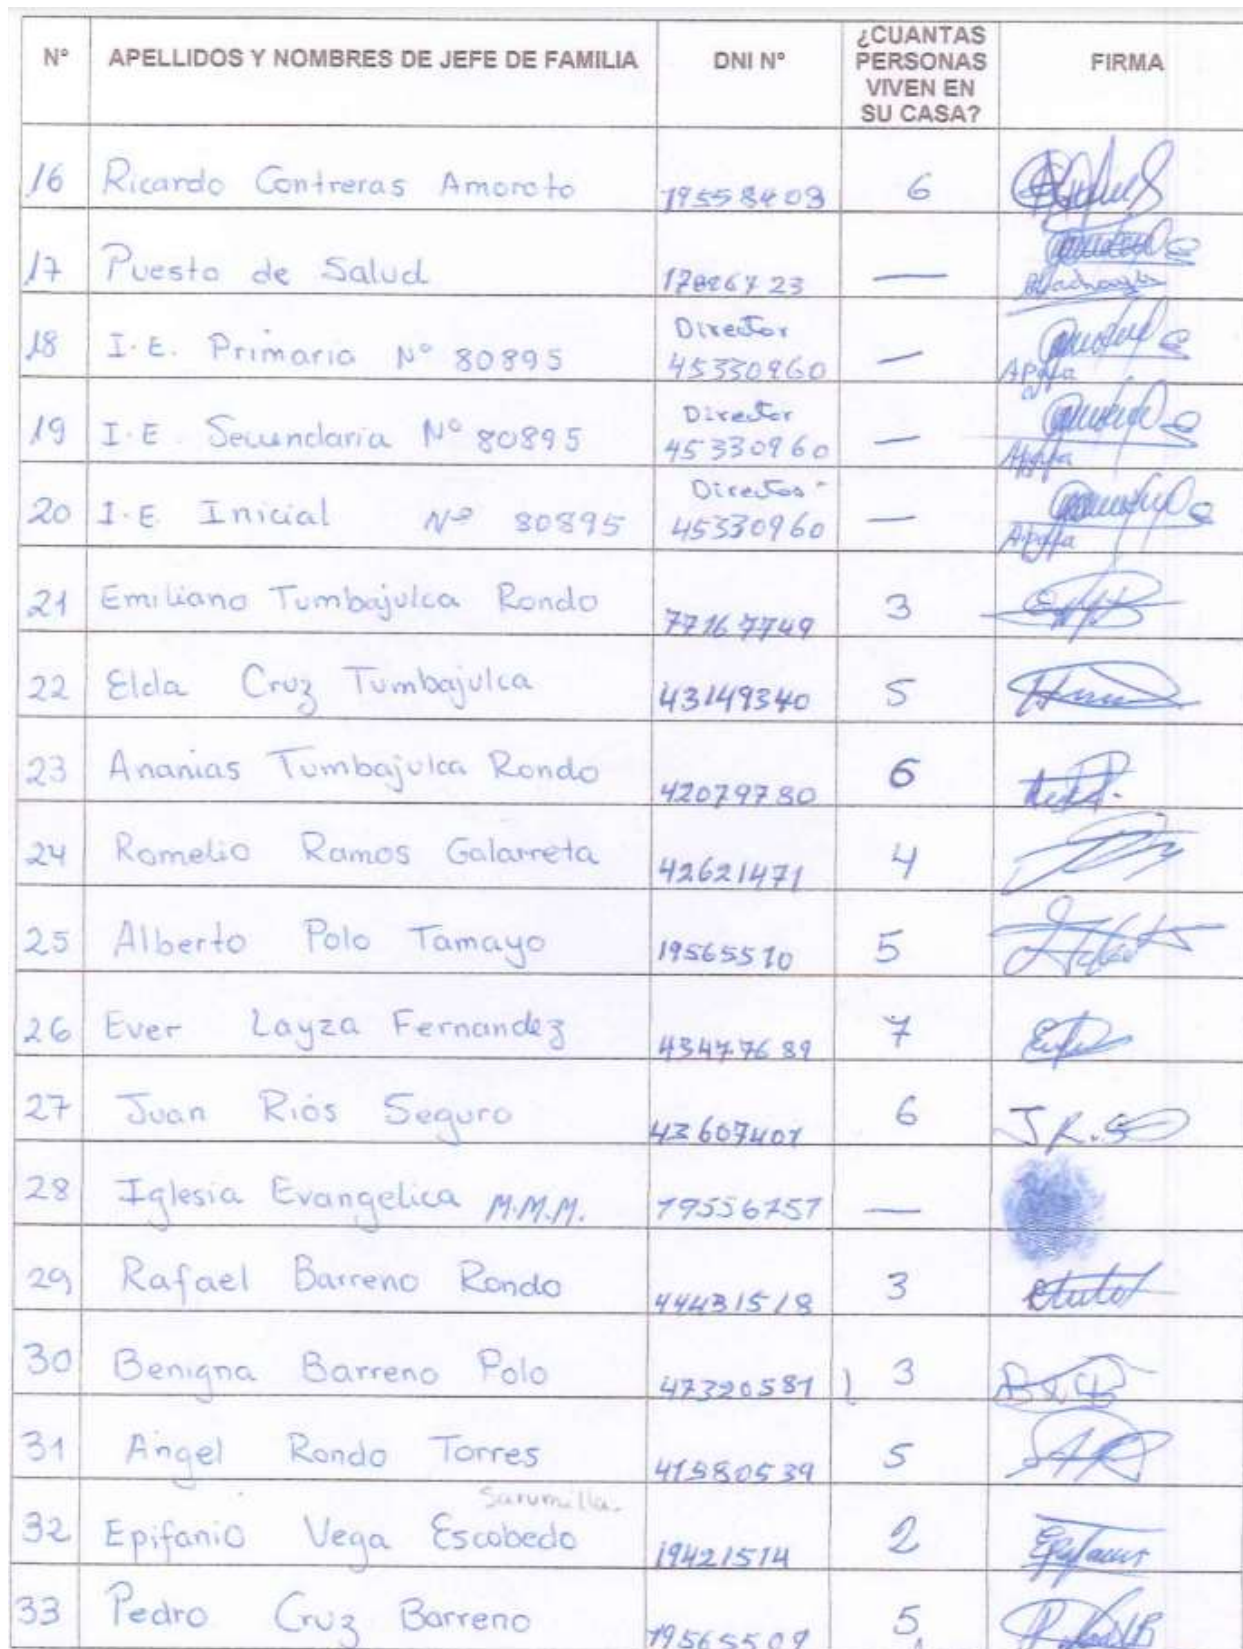 N° APELLIDOS Y NOMBRES DE JEFE DE FAMILIA DNI N° ¿CUANTAS PERSONAS VIVEN EN SU CASA? FIRMA
16 Ricardo Contreras Amoroto 19558403 6
17 Puesto de Salud 17826723 —
18 I.E. Primaria N° 80895 Director 45330960 — Apafa
19 I.E. Secundaria N° 80895 Director 45330960 — Apafa
20 I.E. Inicial N° 80895 Director 45330960 — Apafa
21 Emiliano Tumbajulca Rondo 77167749 3
22 Elda Cruz Tumbajulca 43149340 5
23 Ananias Tumbajulca Rondo 42079780 6
24 Romelio Ramos Galarreta 42621471 4
25 Alberto Polo Tamayo 19565510 5
26 Ever Layza Fernandez 43477689 7
27 Juan Riós Seguro 43607401 6 J.R.S
28 Iglesia Evangelica M.M.M. 19556757 —
29 Rafael Barreno Rondo 44431518 3
30 Benigna Barreno Polo 47320581 3
31 Angel Rondo Torres 41580539 5
Sarumilla.
32 Epifanio Vega Escobedo 19421514 2 Epifanio
33 Pedro Cruz Barreno 19565509 5